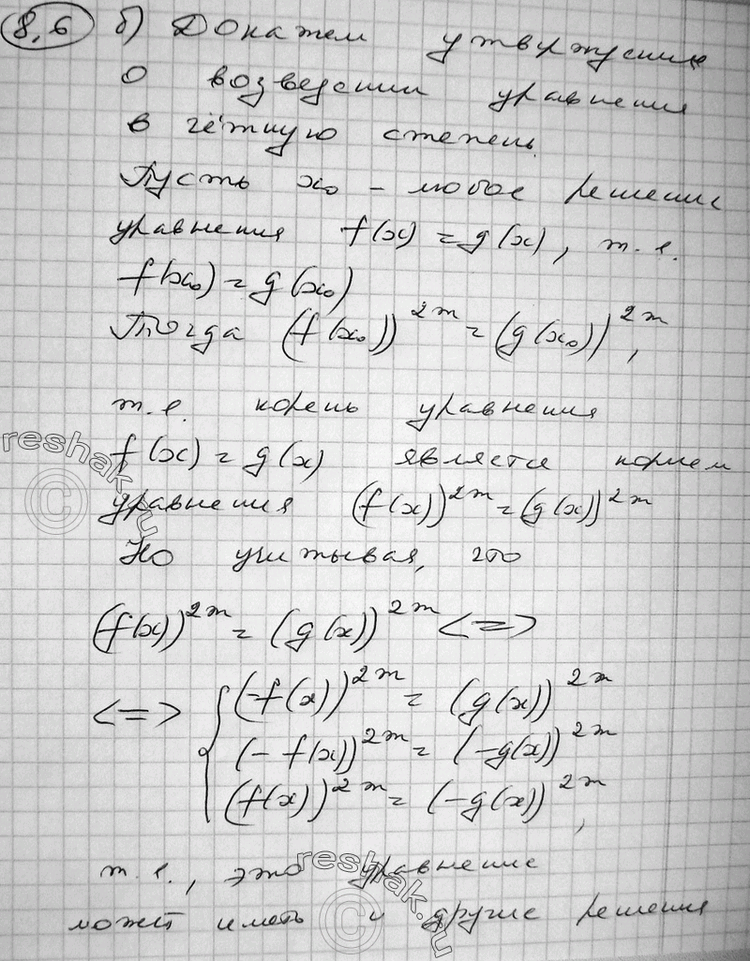 8,6 б) Докажем утверждение
о возведении уравнения
в чётную степень.
Пусть x₀ - любое решение
уравнения f(x) = g(x), т. е.
f(x₀) = g(x₀)
Тогда (f(x₀))^2m = (g(x₀))^2m,
т. е. корень уравнения
f(x) = g(x) является корнем
уравнения (f(x))^2m = (g(x))^2m
Но учитывая, что
(f(x))^2m = (g(x))^2m <=>
<=> { (-f(x))^2m = (g(x))^2m
(-f(x))^2m = (-g(x))^2m
(f(x))^2m = (-g(x))^2m,
т. е., это уравнение
может иметь и другие решения
reshak.ru
©
reshak.ru
©